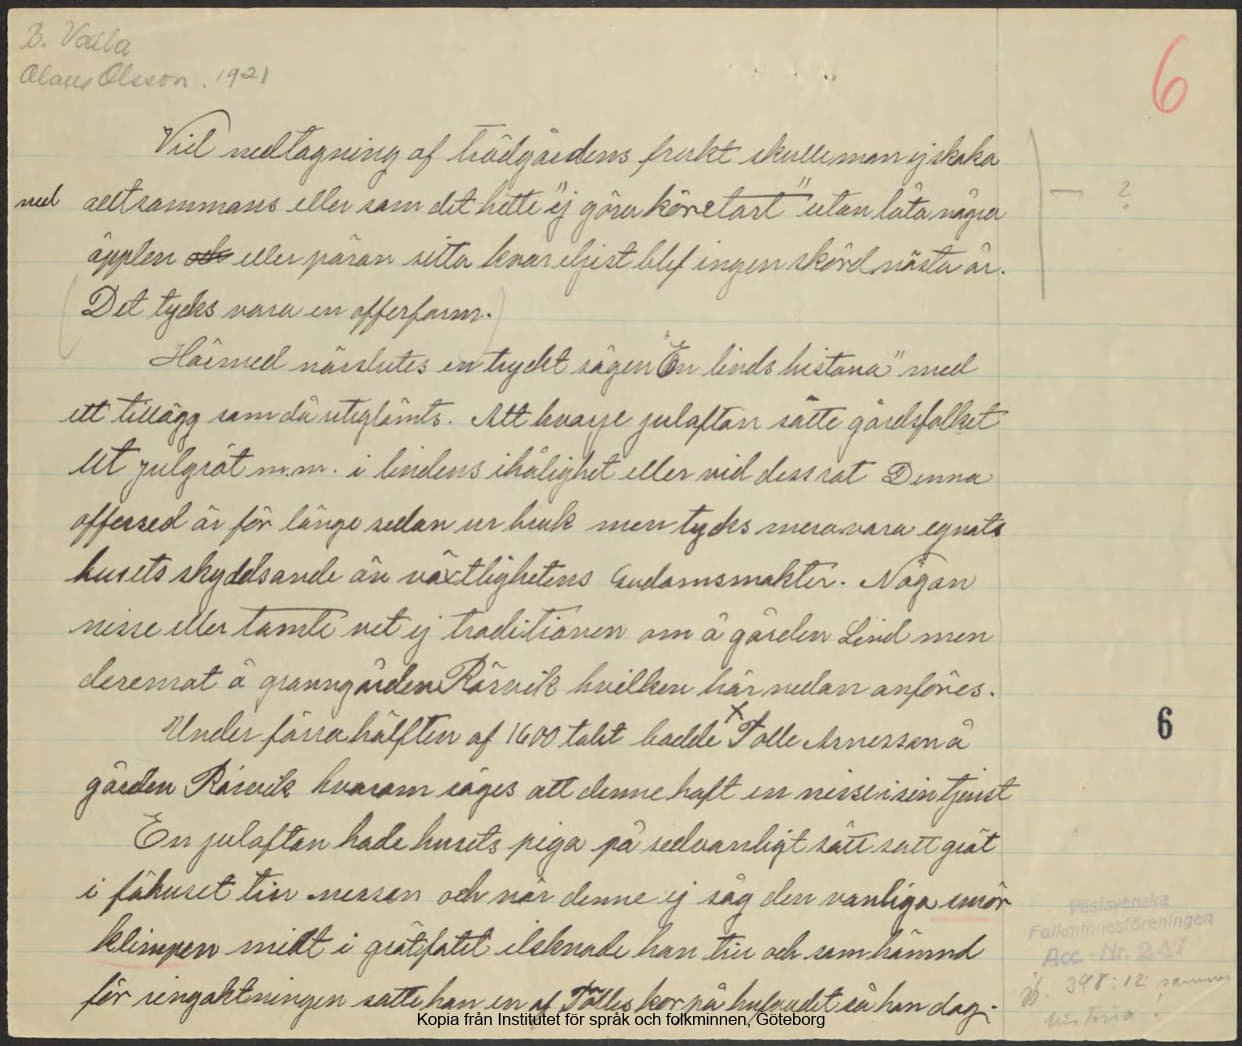 B. Valla
Olaus Olsson. 1921
6
Vid nedtagning af trädgårdens frukt skulle man ej skaka
ned alltsammans eller som det hette "ej göra köretart" utan låta några
äpplen och eller päron sitta kvar eljest blef ingen skörd nästa år.
(Det tycks vara en offerform.)
— ?
Härmed närslutes en tryckt sägen "En linds historia" med
ett tillägg som då utglömts. Att hvarje julafton satte gårdsfolket
ut julgröt m.m. i lindens ihålighet eller vid dess rot Denna
offersed är för länge sedan ur bruk men tycks mera vara egnats
husets skyddsande än växtlighetens Gudomsmakter. Någon
nisse eller tomte vet ej traditionen om å gården Lind men
deremot å granngården Rörvik hvilken här nedan anföres.
Under förra hälften af 1600 talet bodde x Tolle Arnesson å
6
gården Rörvik hvarom säges att denne haft en nisse i sin tjenst
En julafton hade husets piga på sedvanligt sätt satt gröt
i fähuset till nissen och när denne ej såg den vanliga smör
klimpen midt i grötfatet ilsknade han till och som hämnd
för ringaktningen satte han en af Tolles kor på hufvudet så hon dog.
Västsvenska
Folkminnesföreningen
Acc.-Nr. 247
jfr. 398:12 samma
historia!
Kopia från Institutet för språk och folkminnen, Göteborg